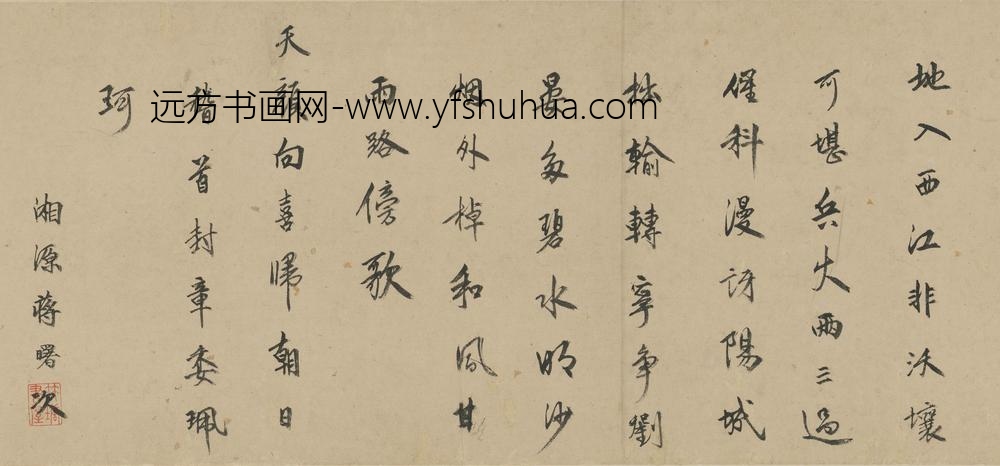 地入西江非沃壤
可堪兵火两三過
催科漫訝陽城
拙輸轉寧争劉
晏多碧水明沙
烟外棹和風甘
雨路傍歌
天顔向喜歸朝日
稽首封章委珮
珂
湘源蒋曙次
远方书画网-www.yfshuhua.com